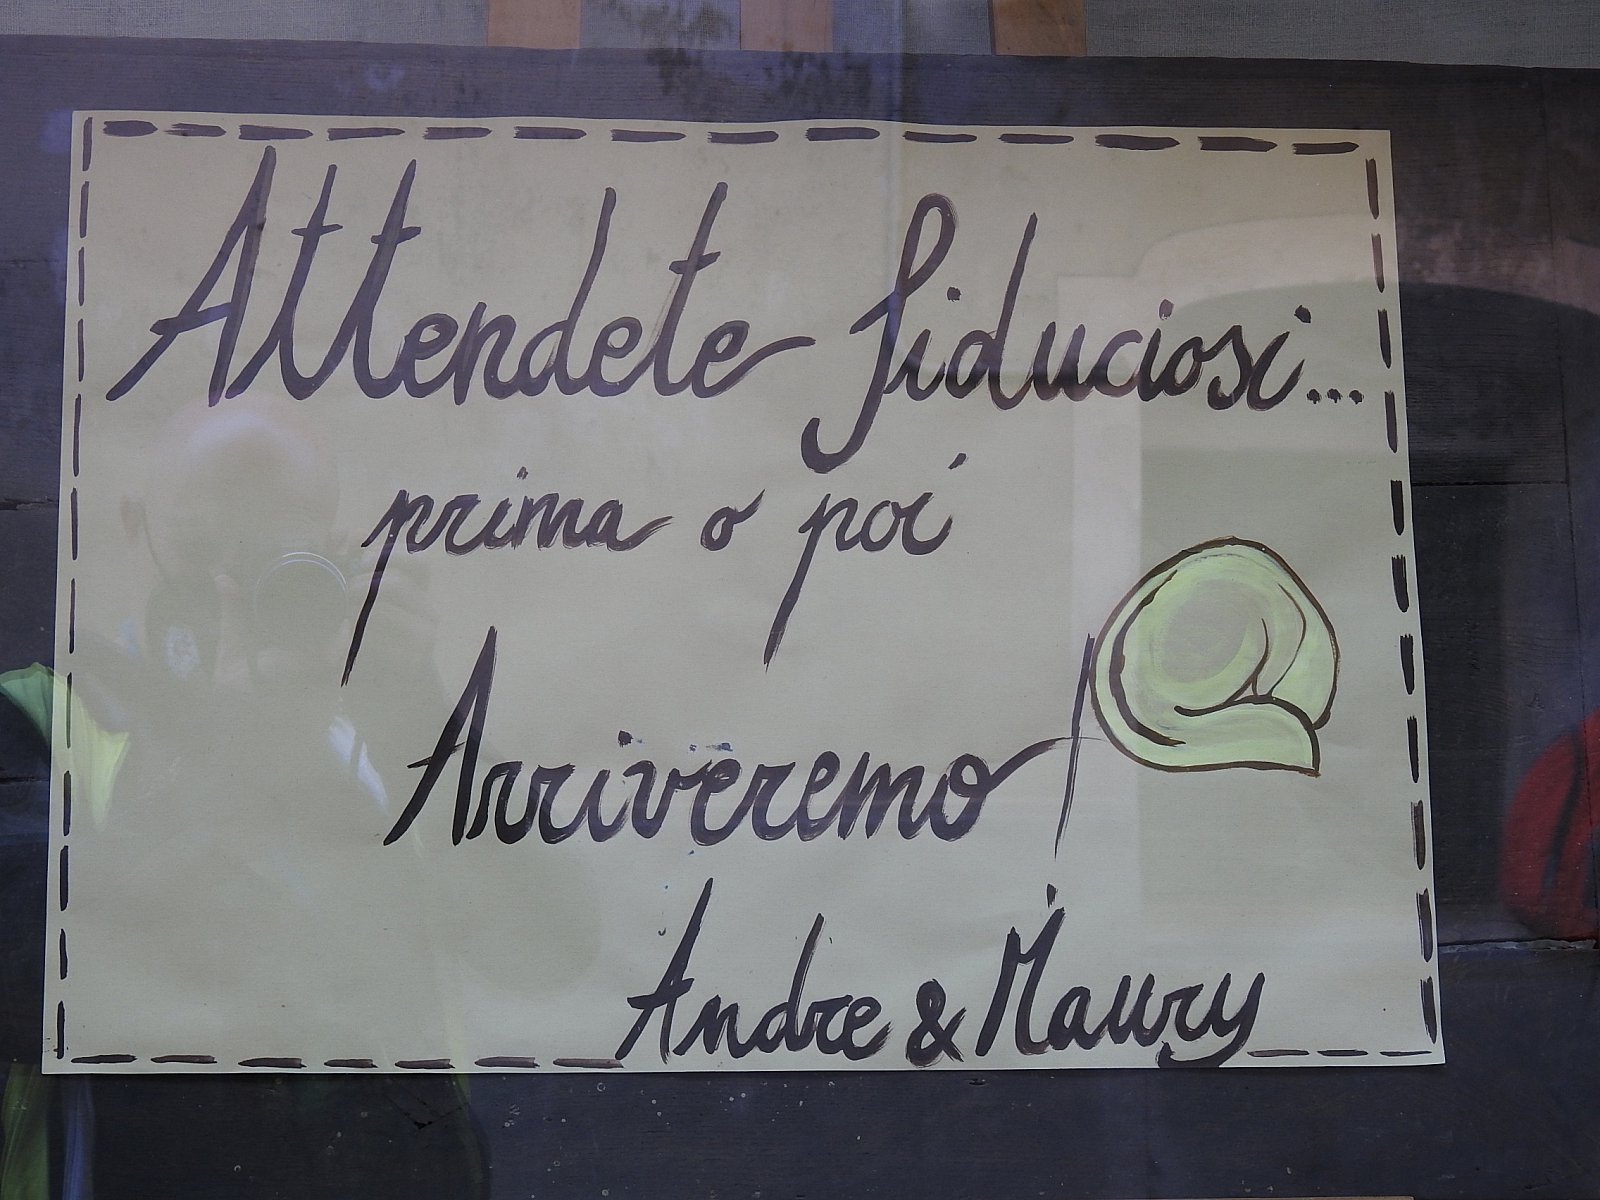 Attendete fiduciosi...
prima o poi
Arriveremo
Andre & Maury